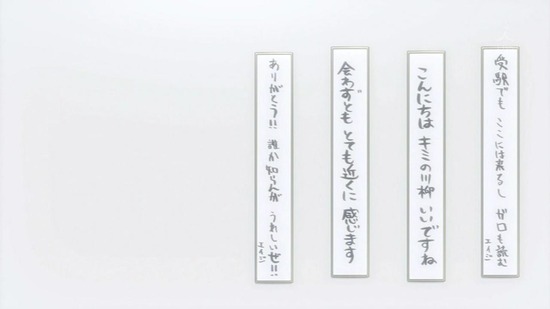 受験でも ここには来るし ガロも読む
エイジ
こんにちは キミの川柳 いいですね
会わずとも とても近くに 感じます
ありがとう!! 誰か知らんが うれしいぜ!!
エイジ